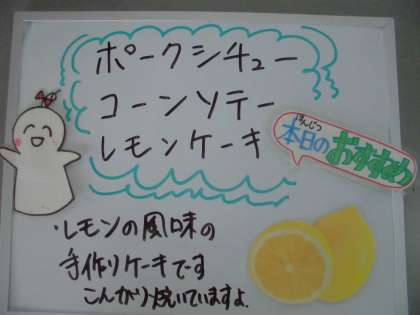 ポークシチュー
コーンソテー
レモンケーキ
ほんじつ
本日の
おすすめ
・レモンの風味の
手作りケーキです
こんがり焼いていますよ